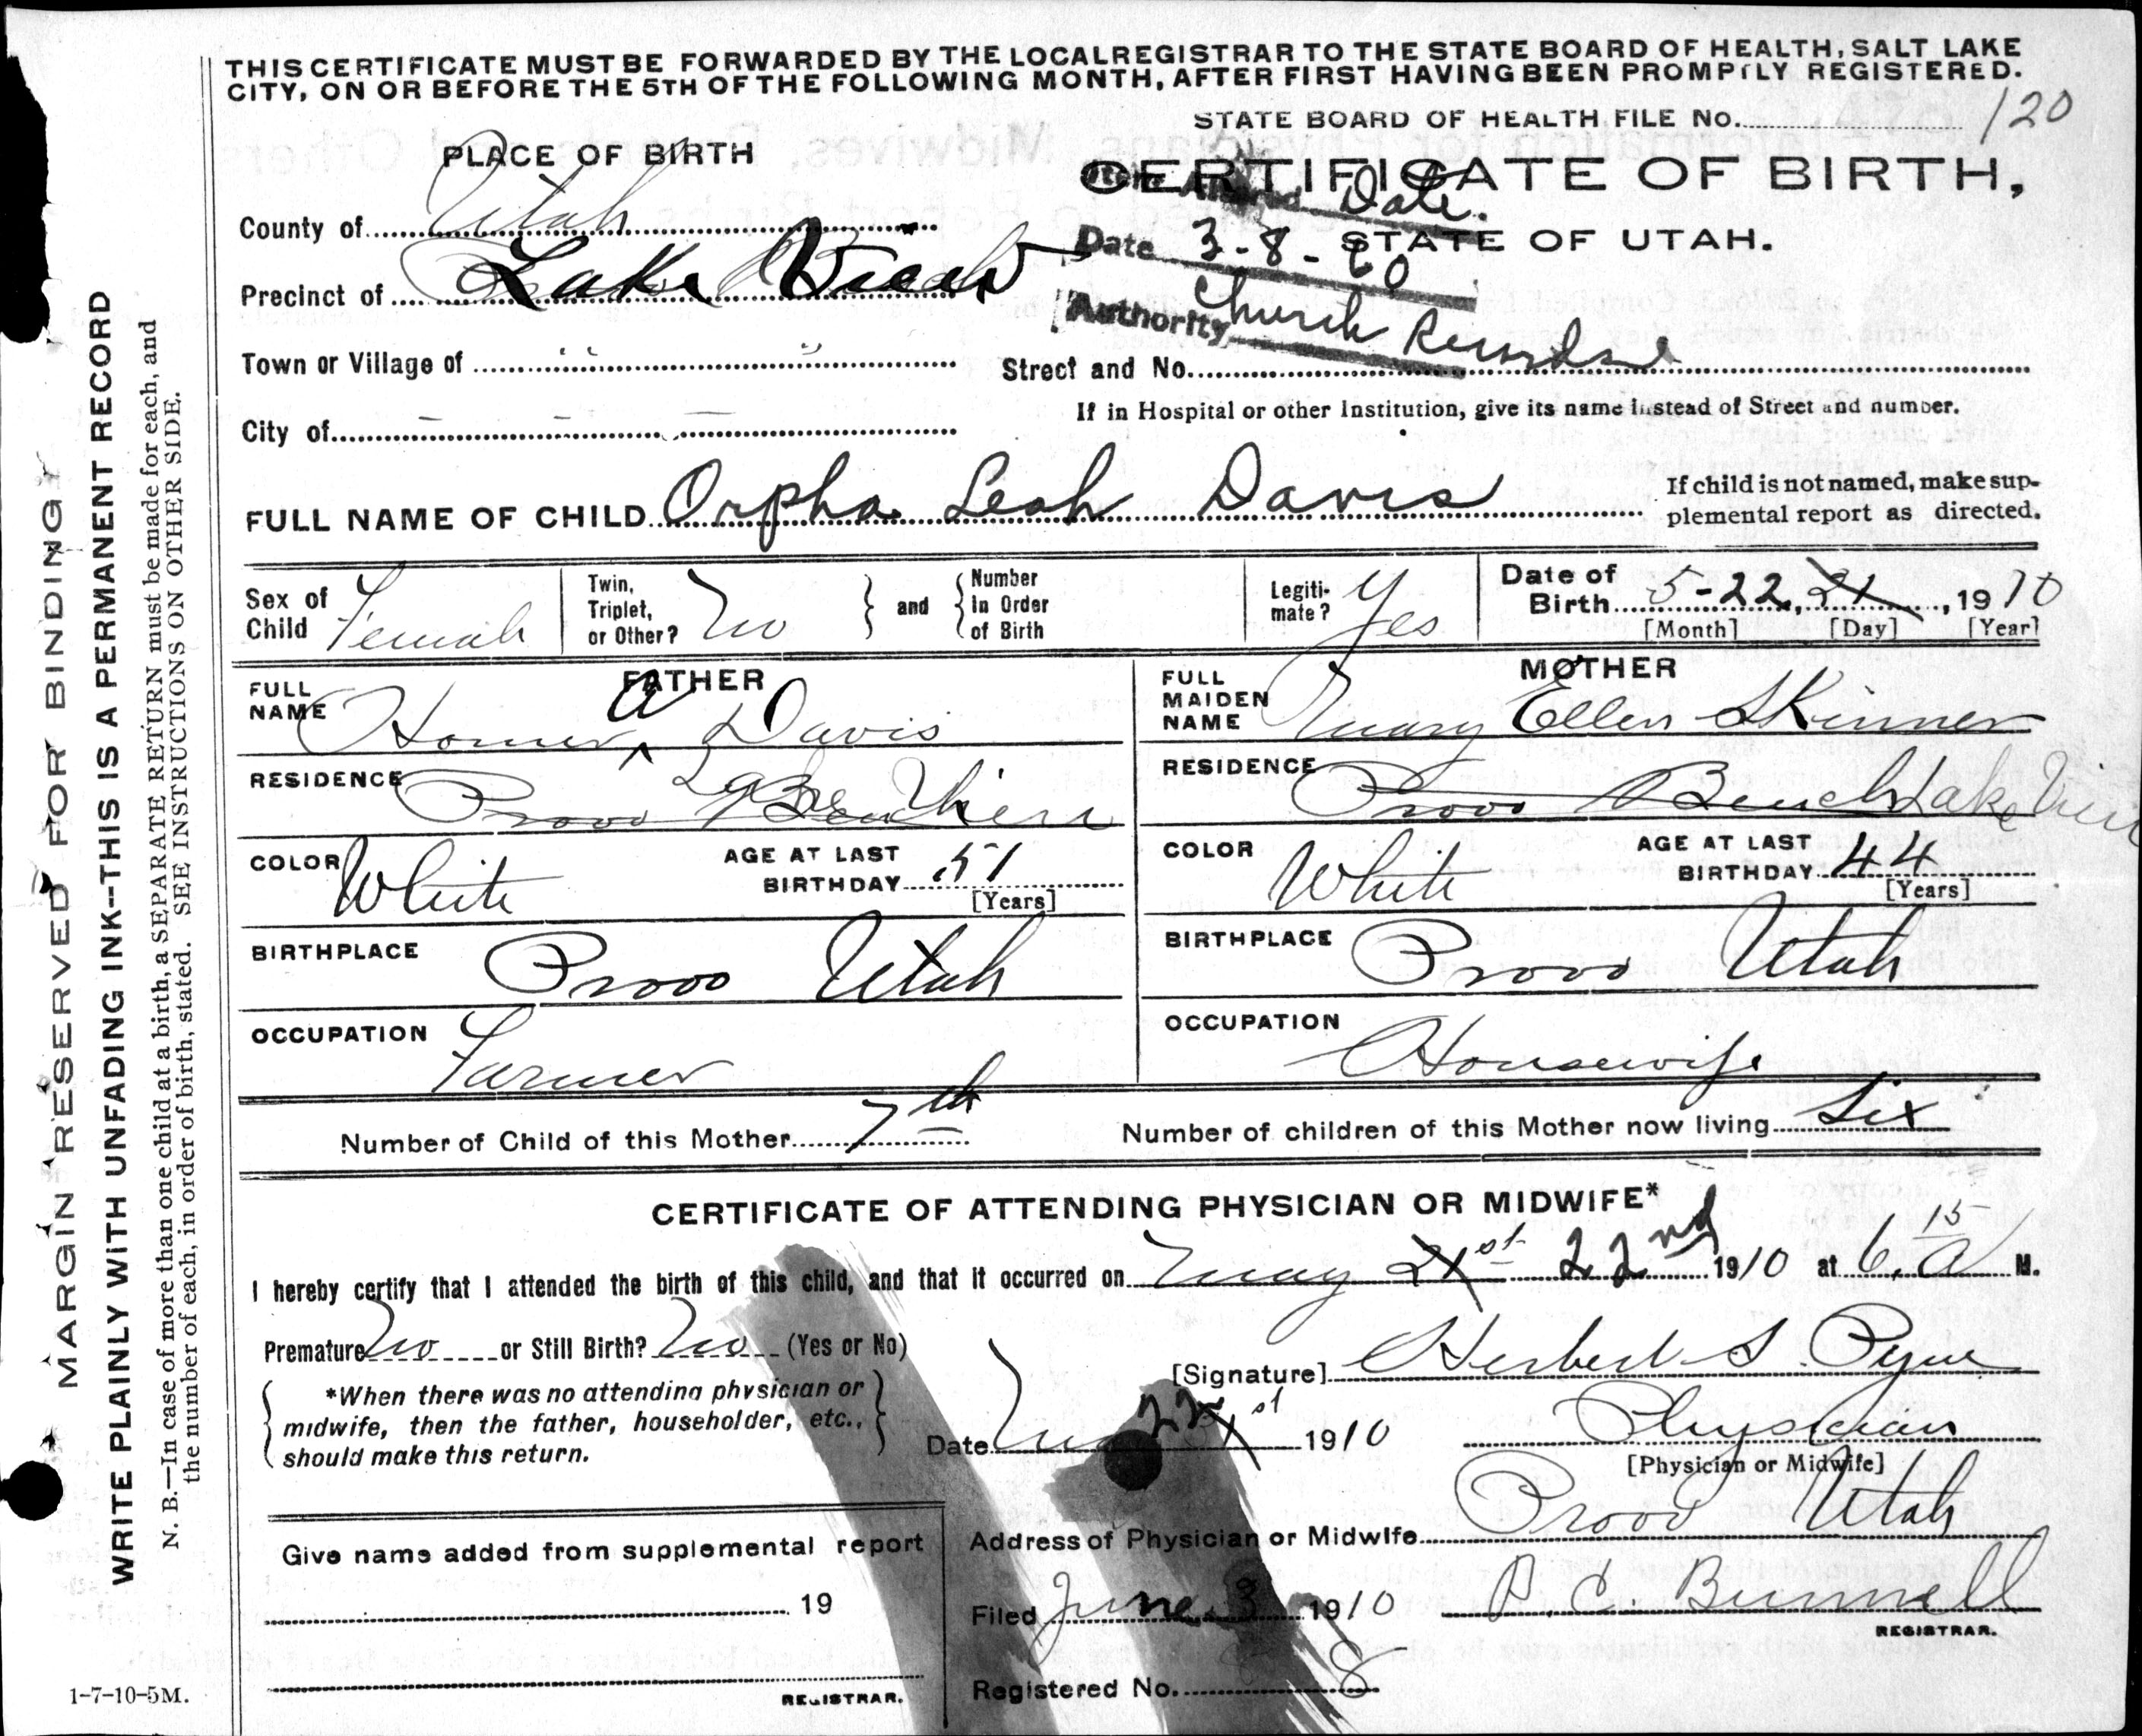 THIS CERTIFICATE MUST BE FORWARDED BY THE LOCAL REGISTRAR TO THE STATE BOARD OF HEALTH, SALT LAKE
CITY, ON OR BEFORE THE 5TH OF THE FOLLOWING MONTH, AFTER FIRST HAVING BEEN PROMPTLY REGISTERED.
STATE BOARD OF HEALTH FILE No. 120
PLACE OF BIRTH
CERTIFICATE OF BIRTH,
Date.
County of Utah
STATE OF UTAH.
Date 3-8-60
Precinct of Lake View
Authority Church Records
Town or Village of " "
Street and No.
City of — — —
If in Hospital or other Institution, give its name instead of Street and number.
FULL NAME OF CHILD Orpha Leah Davis
If child is not named, make sup-
plemental report as directed.
Sex of Child Female
Twin, Triplet, or Other? No
and
Number in Order of Birth
Legiti-mate? Yes
Date of Birth 5-22, 21, 1910
[Month] [Day] [Year]
FATHER
MOTHER
FULL NAME Homer A Davis
FULL MAIDEN NAME Mary Ellen Skinner
RESIDENCE Provo Bench Lake View
RESIDENCE Provo Bench Lake View
COLOR White
AGE AT LAST BIRTHDAY 51 [Years]
COLOR White
AGE AT LAST BIRTHDAY 44 [Years]
BIRTHPLACE Provo Utah
BIRTHPLACE Provo Utah
OCCUPATION Farmer
OCCUPATION Housewife
Number of Child of this Mother 7th
Number of children of this Mother now living Six
CERTIFICATE OF ATTENDING PHYSICIAN OR MIDWIFE*
I hereby certify that I attended the birth of this child, and that it occurred on May 21st 22nd 1910 at 6.15 a M.
Premature No or Still Birth? No (Yes or No)
[Signature] Herbert S. Pyne
*When there was no attending physician or
midwife, then the father, householder, etc.,
should make this return.
Date May 22 21st 1910
Physician
[Physician or Midwife]
Address of Physician or Midwife Provo Utah
Give name added from supplemental report
19
REGISTRAR.
Filed June 3 1910
Bunnell
REGISTRAR.
Registered No. 8
1-7-10-5M.
MARGIN RESERVED FOR BINDING
WRITE PLAINLY WITH UNFADING INK--THIS IS A PERMANENT RECORD
N. B.—In case of more than one child at a birth, a SEPARATE RETURN must be made for each, and
the number of each, in order of birth, stated. SEE INSTRUCTIONS ON OTHER SIDE.